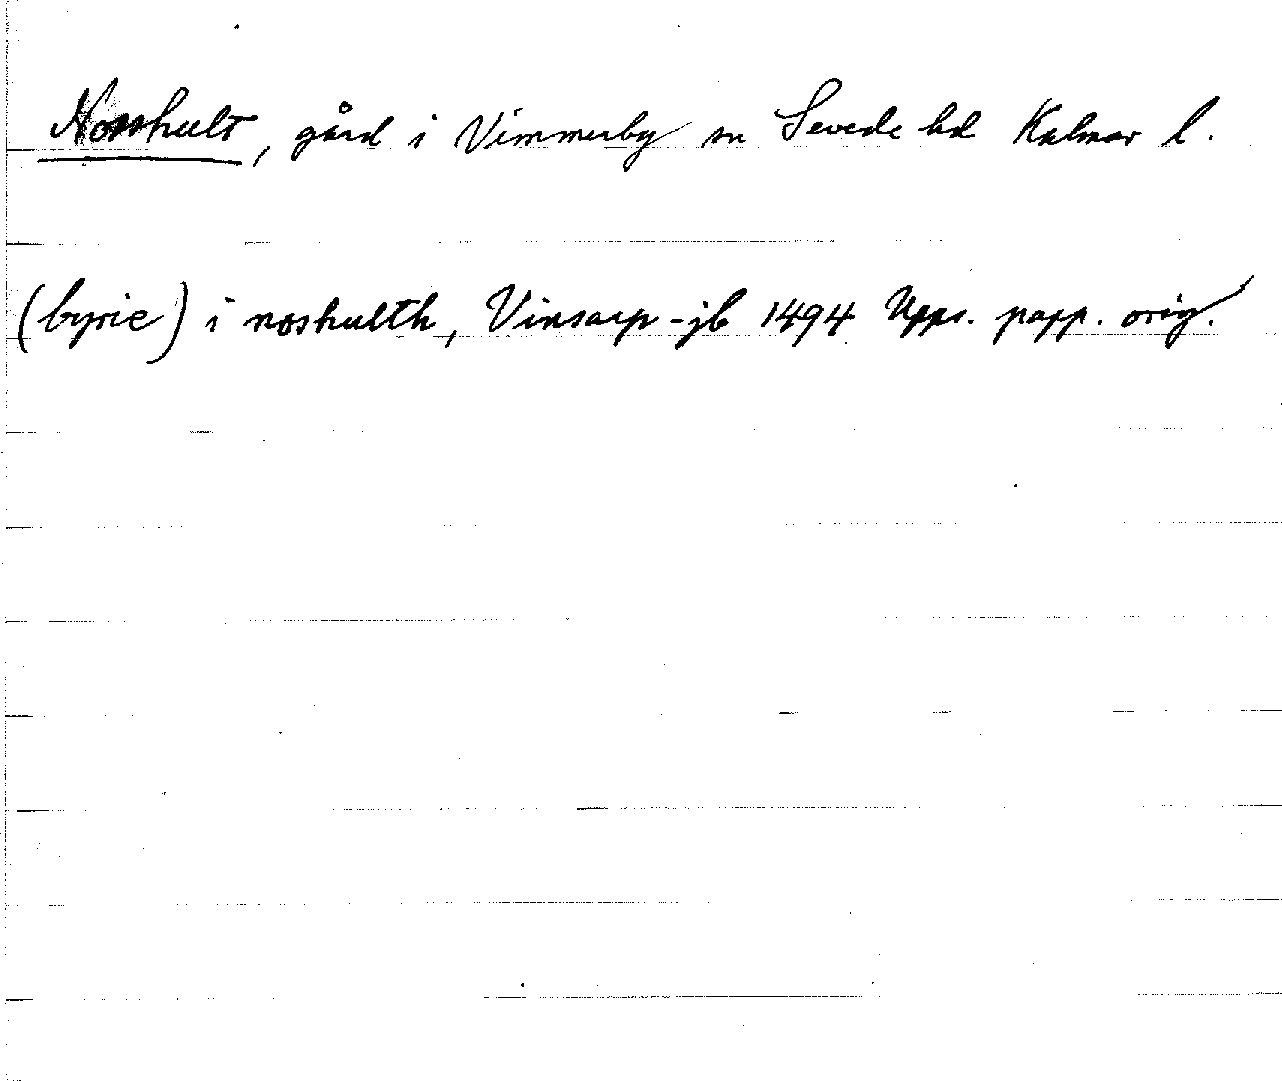 Nosshult, gård i Vimmerby sn Sevede hd Kalmar l.
(byrie) i noshulth, Vinsarp-jb 1494 Upps. papp. orig.